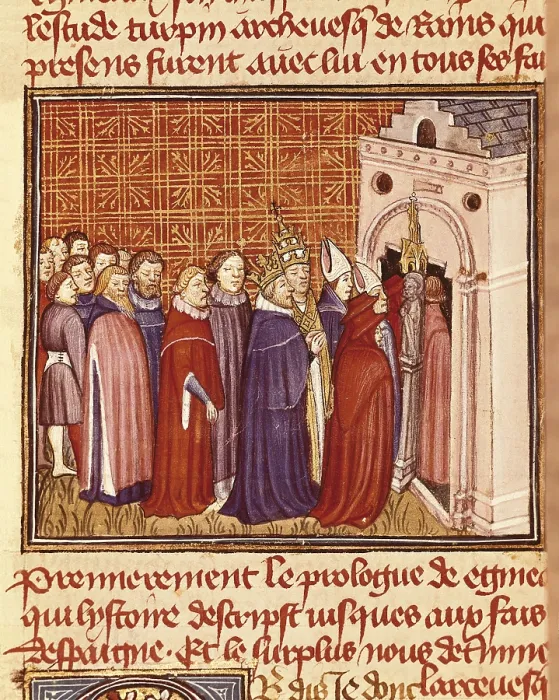 lestude turpin archevesq de Rains qui
presens furent avec lui en tous ses fai
Premierement le prologue de egine
qui lystoire descript iusques aux fais
despaigne. Et le surplus nous
dis Je donc larcevesq